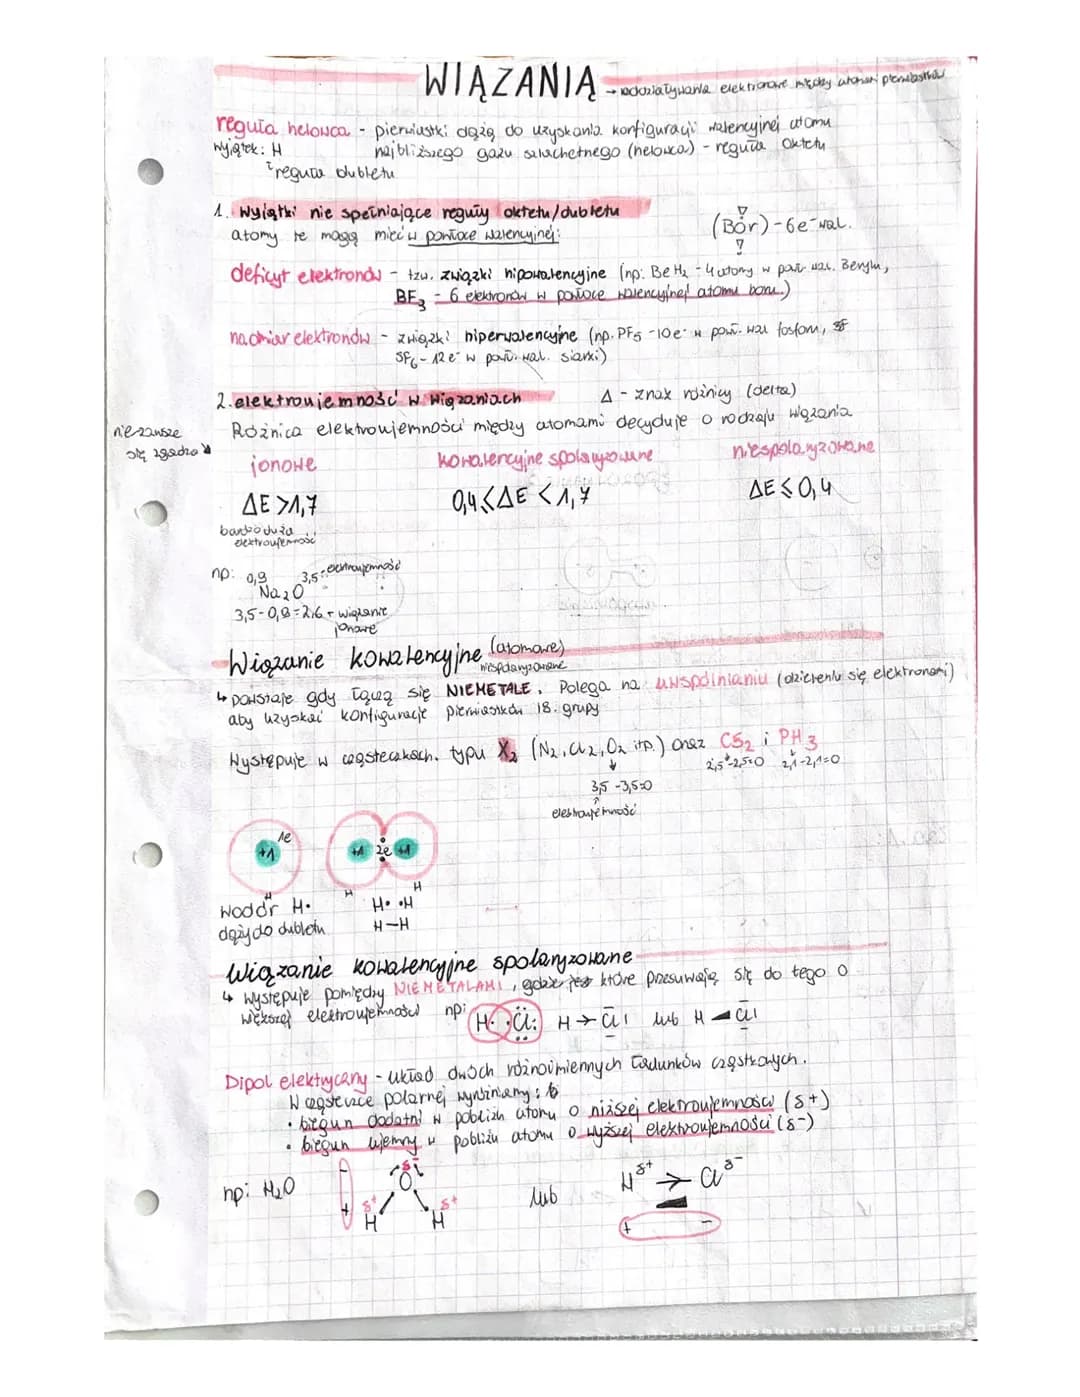 WIĄZANIA → oddziaływania elektronowe między atomami pierwiastków
reguła helowca - pierwiastki dążą do uzyskania konfiguracji walencyjnej atomu
wyjątek: H najbliższego gazu szlachetnego (helowca) - reguła oktetu
reguła dubletu
1. Wyjątki nie spełniające reguły oktetu/dubletu
atomy te mogą mieć w powłoce walencyjnej:
(Bór) - 6e⁻ wal.
deficyt elektronów - tzw. związki hipowalencyjne (np: BeH₂ - 4 atomy w pow. wal. Berylu,
BF₃ - 6 elektronów w powłoce walencyjnej atomu boru.)
nadmiar elektronów - związki hiperwalencyjne (np. PF₅ - 10e⁻ w pow. wal fosforu,
SF₆ - 12 e⁻ w pow. wal. siarki)
2. elektroujemność w wiązaniach Δ - znak różnicy (delta)
Różnica elektroujemności między atomami decyduje o rodzaju wiązania
nie zawsze
się zgadza
jonowe kowalencyjne spolaryzowane niespolaryzowane
ΔE > 1,7 0,4 ≤ ΔE < 1,7 ΔE ≤ 0,4
bardzo duża
elektroujemność
np: 0,9 3,5 elektroujemność
Na₂O
3,5-0,9=2,6 → wiązanie
jonowe
Wiązanie kowalencyjne (atomowe)
niespolaryzowane
↳ powstaje gdy łączą się NIEMETALE. Polega na uwspólnianiu (dzieleniu się elektronami)
aby uzyskać konfigurację pierwiastków 18. grupy
Występuje w cząsteczkach typu X₂ (N₂, Cl₂, O₂ itp.) oraz CS₂ i PH₃
2,5-2,5=0 2,1-2,1=0
3,5 -3,5=0
elektroujemność
+1 1e +1 2e +1
H H H
wodór H• H• •H
dąży do dubletu H-H
Wiązanie kowalencyjne spolaryzowane
↳ występuje pomiędzy NIEMETALAMI, które przesuwają się do tego o
większej elektroujemności np: H• •Cl: H → Cl lub H ◄ Cl
Dipol elektryczny - układ dwóch różnoimiennych ładunków cząstkowych.
W cząsteczce polarnej wyróżniamy:
• biegun dodatni w pobliżu atomu o niższej elektroujemności (δ+)
• biegun ujemny w pobliżu atomu o wyższej elektroujemności (δ-)
np: H₂O - + δ- O δ+ H δ+ H lub H δ+ → Cl δ-
+ -